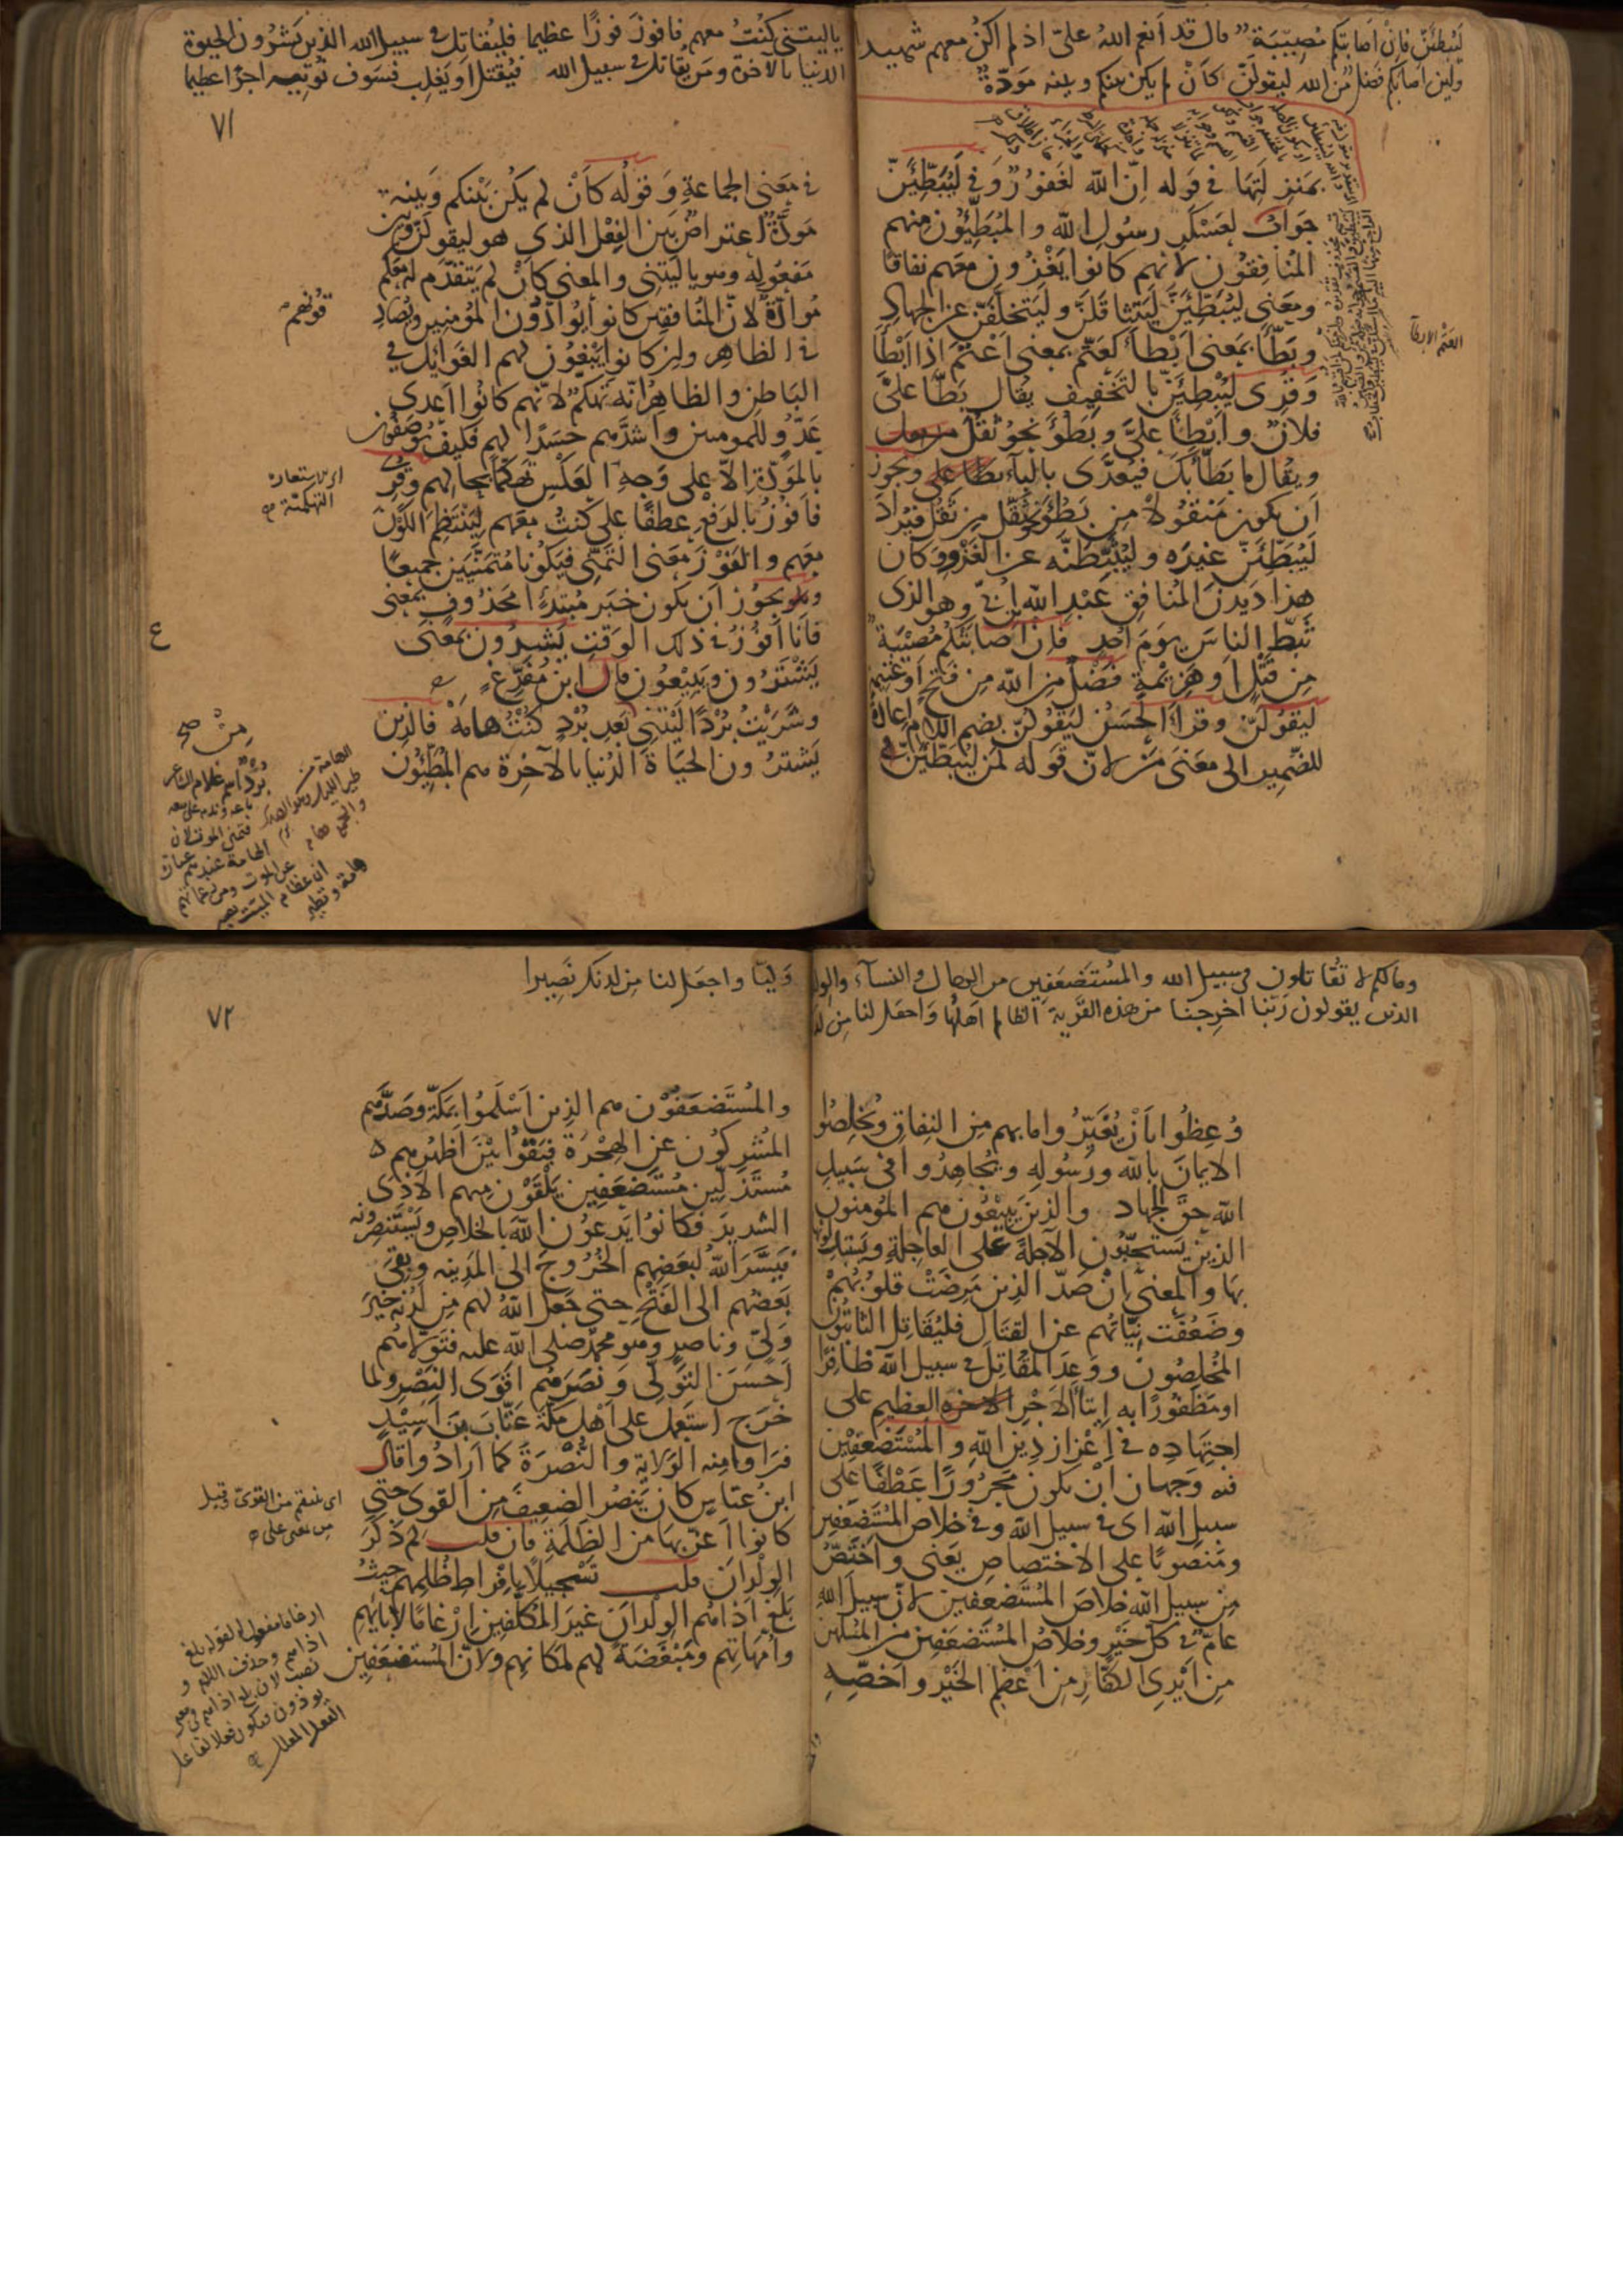 ليبطئن فان اصابتكم مصيبة قال قد انعم الله علىّ اذ لم اكن معهم شهيدا
ولئن اصابكم فضل من الله ليقولنّ كأن لم يكن بينكم وبينه مودّة
بمنزلتها في قوله انّ الله لغفورٌ وفي ليبطّئنّ
جواب لعسكر رسول الله والمبطّئون منهم
المنافقون لانهم كانوا يغزون معهم نفاقا
ومعنى ليبطّئنّ ليتثاقلنّ وليتخلّفنّ عن الجهاد
وبطّأ بمعنى ابطأ كعتّم بمعنى اعتم اذا ابطأ
وقرى ليبطئنّ بالتخفيف يقال بطّأ علىّ
فلان وابطأ علىّ وبطؤ نحو ثقل
ويقال ما بطّأ بك فيعدّى بالباء ويجوز
ان يكون منقولا من بطؤ نحو ثقّل من ثقل فيراد
ليبطّئنّ غيره وليثبّطنّه عن الغزو وكان
هذا ديدن المنافق عبد الله ابن ابي وهو الذى
ثبّط الناس يوم احد فان اصابتكم مصيبة
من قتل او هزيمة فضل من الله من فتح او غنيمة
ليقولنّ وقرأ الحسن ليقولنّ بضم اللام اعادة
للضمير الى معنى من لانّ قوله لمن ليبطّئنّ
العتم الابطآ
ياليتني كنت معهم فافوز فوزا عظيما فليقاتل في سبيل الله الذين يشرون الحيوة
الدنيا بالآخرة ومن يقاتل في سبيل الله فيقتل او يغلب فسوف نؤتيه اجرا عظيما
٧١
في معنى الجماعة وقوله كأن لم يكن بينكم وبينه
مودّة اعتراض بين الفعل الذي هو ليقولنّ وبين
مفعوله وهو ياليتني والمعنى كأن لم يتقدّم له معكم
موادّة لانّ المنافقين كانوا يوادّون المؤمنين ويصادقونهم
في الظاهر وان كانوا يبغون لهم الغوائل في
الباطن والظاهر انّه تهكّم لانّهم كانوا اعدى
عدوّ للمومنين واشدّهم حسدا لهم فكيف يوصفون
بالمودّة الاّ على وجه العكس تهكّما بحالهم وقرى
فافوز بالرفع عطفا على كنت معهم لينتظم الكون
معهم والفوز معنى التمنّي فيكونا متمنّيين جميعا
ويجوز ان يكون خبر مبتدإ محذوف بمعنى
فانا افوز في ذلك الوقت يشرون بمعنى
يشترون ويبيعون قال ابن مفرّغ
وشريت بردا ليتني من بعد برد كنت هامه فالذين
يشترون الحياة الدنيا بالآخرة هم المبطّئون
اي الاستعارة
التهكمية
ع
من صح
برد اسم غلام الشاعر
وما لكم لا تقاتلون في سبيل الله والمستضعفين من الرجال والنساء والولدان
الذين يقولون ربّنا اخرجنا من هذه القرية الظالم اهلها واجعل لنا من لدنك
وعظوا بان يغيّروا ما بهم من النفاق ويخلصوا
الايمان بالله ورسوله ويجاهدوا في سبيل
الله حقّ الجهاد والذين يبيعون هم المؤمنون
الذين يستحبّون الآجلة على العاجلة ويستبدلونها
بها والمعنى ان صدّ الذين مرضت قلوبهم
وضعفت نيّاتهم عن القتال فليقاتل الثابتون
المخلصون ووعد المقاتل في سبيل الله ظافرا
او مظفورا به ايتاء الاجر العظيم على
اجتهاده في اعزاز دين الله والمستضعفين
فيه وجهان ان يكون مجرورا عطفا على
سبيل الله اى في سبيل الله وفي خلاص المستضعفين
ومنصوبا على الاختصاص يعنى واختصّ
من سبيل الله خلاص المستضعفين لانّ سبيل الله
عامّ في كلّ خير وخلاص المستضعفين من المسلمين
من ايدى الكفّار من اعظم الخير واخصّه
وليّا واجعل لنا من لدنك نصيرا
٧٢
والمستضعفون هم الذين اسلموا بمكّة وصدّهم
المشركون عن الهجرة فبقوا بين اظهرهم
مستذلّين مستضعفين يلقون منهم الاذى
الشديد فكانوا يدعون الله بالخلاص ويستنصرونه
فيسّر الله لبعضهم الخروج الى المدينه وبقى
بعضهم الى الفتح حتى جعل الله لهم من لدنه خير
ولىّ وناصر وهو محمد صلى الله عليه فتولاّهم
احسن التولّى ونصرهم اقوى النصر ولما
خرج استعمل على اهل مكة عتّاب بن اسيد
فراوا منه الولاية والنصرة كما ارادوا قال
ابن عبّاس كان ينصر الضعيف من القوى حتى
كانوا اعزّ بها من الظلمة فان قلت لم ذكر
الولدان قلت تسجيلا بافراط ظلمهم حيث
بلغ اذاهم الولدان غير المكلّفين ارغاما لآبائهم
وامّهاتهم ومبغضة لهم لمكانهم ولانّ المستضعفين
اى ينتقم من القوى وقيل
من بمعنى على
ارغاما مفعول له لقوله بلغ
اذاهم وحذف اللام و